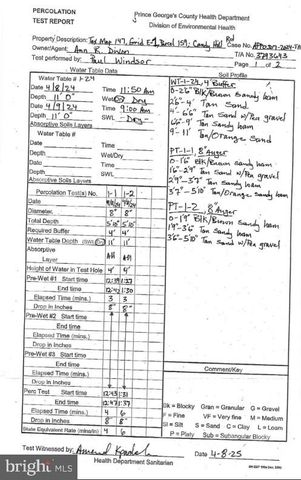 PERCOLATION
TEST REPORT
Prince George's County Health Department
Division of Environmental Health
Property Description: Tax Map 147, Grid Parcel 159; Candy Hill Rd
Case No.
Owner/Agent: Ann R. Dixon
T/A No. 3793643
Test performed by: Paul Windsor
Page 1 of 2
Water Table Data
Water Table # 1-24
Date 4/8/24 Time 11:50 am
Depth 11' 0" Wet/Dry
Date 4/9/24 Time 9:00 am
Depth 11' 0" SWL - Dry -
Absorptive Soils Layers
Water Table #
Date Time
Depth Wet/Dry
Date Time
Depth SWL
Absorptive Soils Layers
Percolation Test(s) No. 1-1 1-2
Date
Diameter 8" 8"
Total Depth 5'10" 5'10"
Required Buffer 4' 4'
Water Table Depth (SWL) 11' 11'
Absorptive
Layer
Height of Water in Test Hole 4" 4"
Pre-Wet #1 Start time 12:39 1:27
End time 12:42 1:30
Elapsed Time (mins.) 3 3
Drop in Inches 8" 8"
Pre-Wet #2 Start time
End time
Elapsed Time (mins.)
Drop in Inches
Pre-Wet #3 Start time
End time
Elapsed Time (mins.)
Drop in Inches
Perc Test Start time 12:43 1:31
End time 12:47 1:37
Elapsed Time (mins.) 4 6
Drop in Inches 8" 8"
State Equivalent Rate (mins/in) 4 6
Soil Profile
0-26" Blk/Brown Sandy loam
26"-4' Tan Sand
4'-66" Tan Sand w/Pea gravel
Tan Sandy loam
9'-11' Tan/Orange Sand
PT-1-1 8" Auger
0-16" Blk/Brown Sandy loam
16"-29" Tan Sand w/Pea gravel
Tan Sandy loam
Tan/Orange Sand
PT-1-2 8" Auger
0-19" Blk/Brown Sandy loam
Tan Sandy loam
Tan Sand w/Pea gravel
Comment/Key
Bk = Blocky Gran = Granular G = Gravel
F = Fine VF = Very fine M = Medium
Si = Silt S = Sand C = Clay L = Loam
P = Platy Sub = Subangular Blocky
Test Witnessed by:
Date 4-8-25
Health Department Sanitarian
BRIGHT MLS